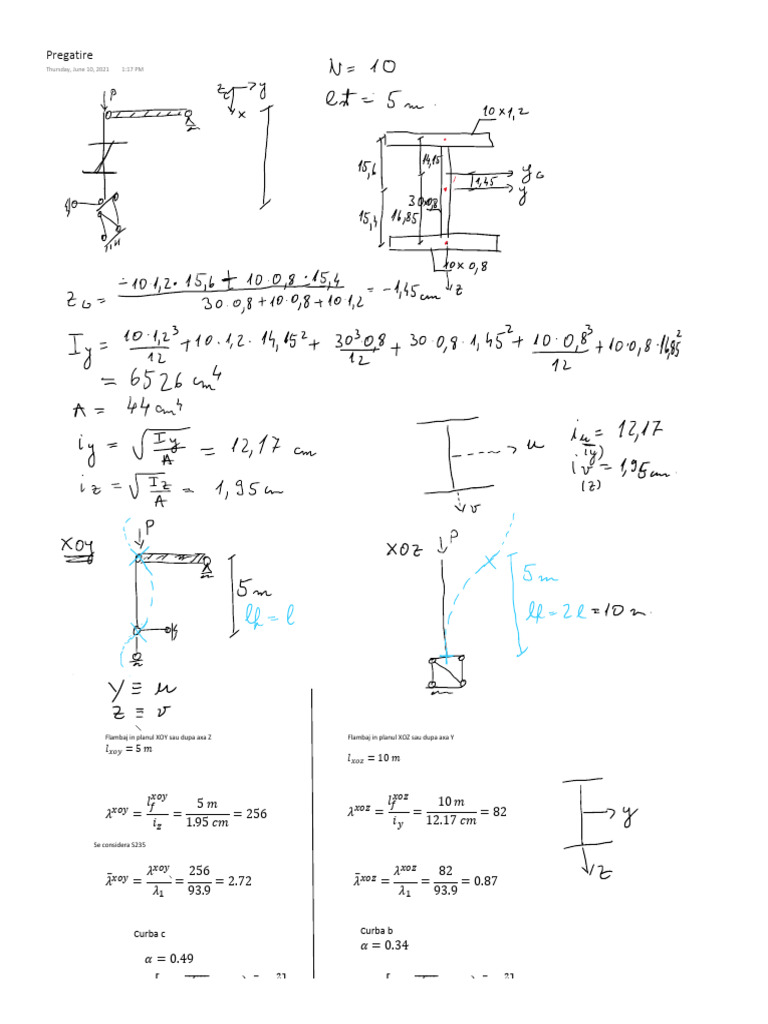 Pregatire
Thursday, June 10, 2021 1:17 PM
N = 10
lt = 5 m.
P
z y
x
10 x 1,2
15,6
14,15
y_G
1,45
y
30x0,8
15,4
16,85
10 x 0,8
z
z_G = (-10·1,2·15,6 + 10·0,8·15,4) / (30·0,8+10·0,8+10·1,2) = -1,45 cm
I_y = 10·1,2³/12 + 10·1,2·14,15² + 30³·0,8/12 + 30·0,8·1,45² + 10·0,8³/12 + 10·0,8·16,85²
= 6526 cm⁴
A = 44 cm⁴
i_y = √(I_y/A) = 12,17 cm
i_z = √(I_z/A) = 1,95 cm
u
v
i_u = 12,17
(iy)
i_v = 1,95 cm.
(z)
XOY
P
5 m
lf = l
XOZ
P
5 m
lf = 2l = 10 m.
Y ≡ u
Z ≡ v
Flambaj in planul XOY sau dupa axa Z
l_xoy = 5 m
λ^xoy = l_f^xoy / i_z = 5 m / 1.95 cm = 256
Se considera S235
λ̄^xoy = λ^xoy / λ₁ = 256 / 93.9 = 2.72
Curba c
α = 0.49
Flambaj in planul XOZ sau dupa axa Y
l_xoz = 10 m
λ^xoz = l_f^xoz / i_y = 10 m / 12.17 cm = 82
λ̄^xoz = λ^xoz / λ₁ = 82 / 93.9 = 0.87
Curba b
α = 0.34
y
z